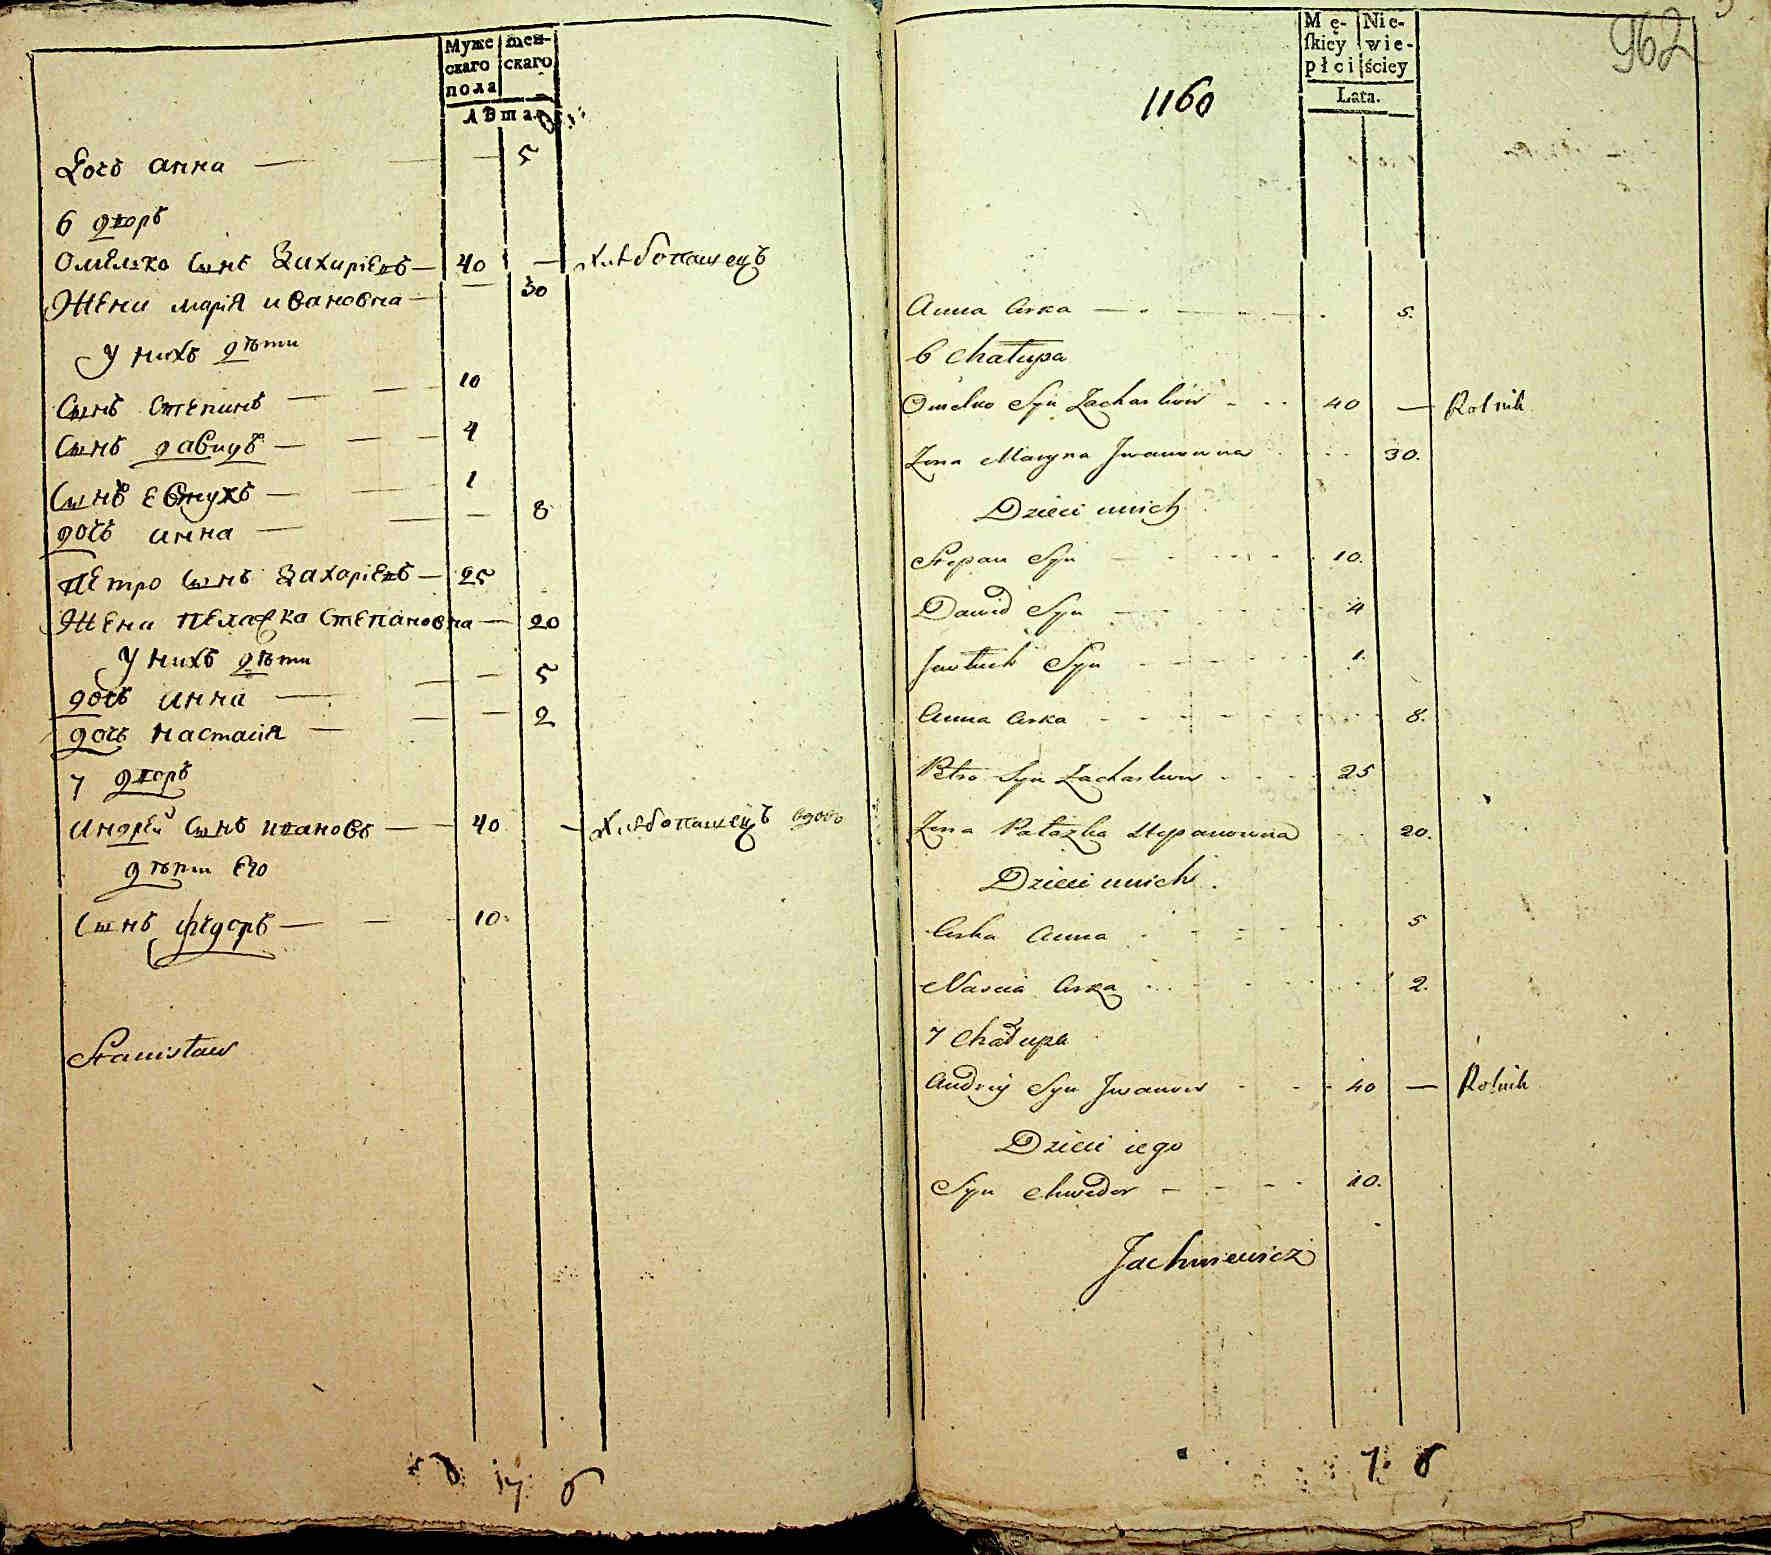 Муже скаго пола
жен- скаго
Лѣта.
Дочь анна — 5
6 дворъ
Омелько Сынъ Захарiевъ — 40 — хлѣбопашецъ
Жена марiя ивановна — 30
У нихъ дѣти
Сынъ Степанъ — 10
Сынъ давидъ — 4
Сынъ Евтухъ — 1
дочь анна — 8
Петро Сынъ Захарiевъ — 25
Жена Пелагея Степановна — 20
У нихъ дѣти
дочь анна — 5
дочь настасiя — 2
7 дворъ
андрей Сынъ ивановъ — 40 — хлѣбопашецъ вдовъ
дѣти Его
Сынъ Федоръ — 10
Stanisław
7 6
962
Mę- ſkiey płci
Nie- wie- ściey
Lata.
1160
Anna Curka — 5.
6 Chałupa
Omelko Syn Zacharkow 40 — Rolnik
Zona Maryna Jwanowna 30.
Dzieci unich
Stepan Syn 10.
Dawid Syn 4
Jawtuch Syn 1.
Anna Curka 8.
Petro Syn Zacharkow 25
Zona Pałazka Stepanowna 20.
Dzieci unich.
Curka Anna 5
Nascia Curka 2.
7 Chałupa
Andrey Syn Jwanow 40 — Rolnik
Dzieci iego
Syn Chwedor 10.
Jachniewicz
7. 6